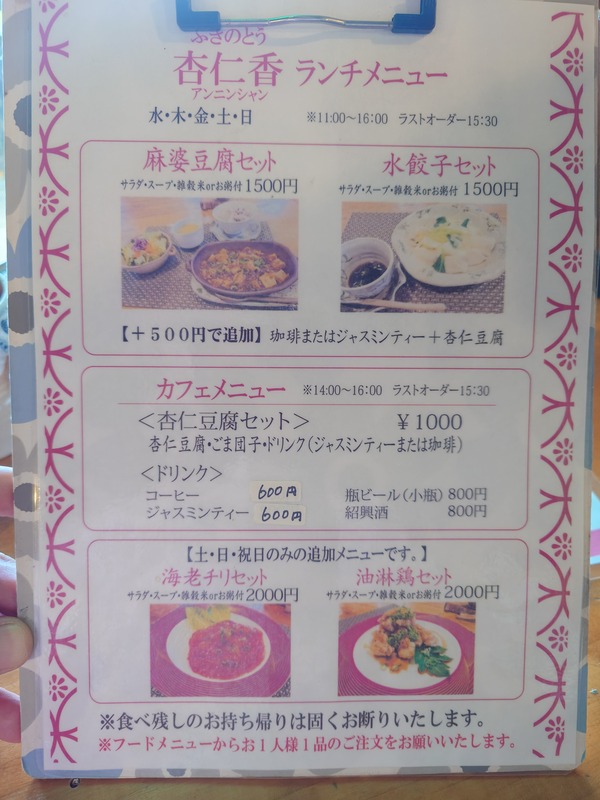 ふきのとう
杏仁香 ランチメニュー
アンニンシャン
水・木・金・土・日 ※11:00～16:00 ラストオーダー15:30
麻婆豆腐セット
サラダ・スープ・雑穀米orお粥付 1500円
水餃子セット
サラダ・スープ・雑穀米orお粥付 1500円
【＋５００円で追加】珈琲またはジャスミンティー＋杏仁豆腐
カフェメニュー ※14:00～16:00 ラストオーダー15:30
＜杏仁豆腐セット＞ ￥1000
杏仁豆腐・ごま団子・ドリンク(ジャスミンティーまたは珈琲)
＜ドリンク＞
コーヒー 600円 瓶ビール(小瓶) 800円
ジャスミンティー 600円 紹興酒 800円
【土・日・祝日のみの追加メニューです。】
海老チリセット
サラダ・スープ・雑穀米orお粥付 2000円
油淋鶏セット
サラダ・スープ・雑穀米orお粥付 2000円
※食べ残しのお持ち帰りは固くお断りいたします。
※フードメニューからお１人様１品のご注文をお願いいたします。